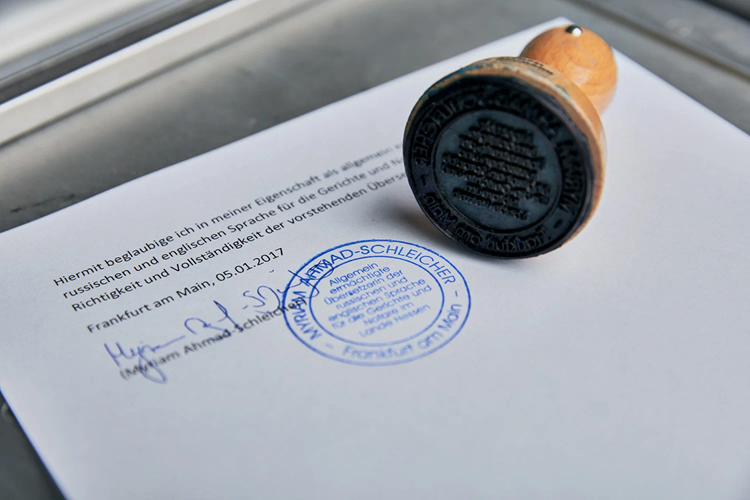 Hiermit beglaubige ich in meiner Eigenschaft als allgemein
russischen und englischen Sprache für die Gerichte und
Richtigkeit und Vollständigkeit der vorstehenden
Frankfurt am Main, 05.01.2017
(Myriam Ahmad-Schleicher)
MYRIAM AHMAD-SCHLEICHER
Allgemein
ermächtigte
Übersetzerin der
russischen und
englischen Sprache
für die Gerichte und
Notare im
Lande Hessen
- Frankfurt am Main -